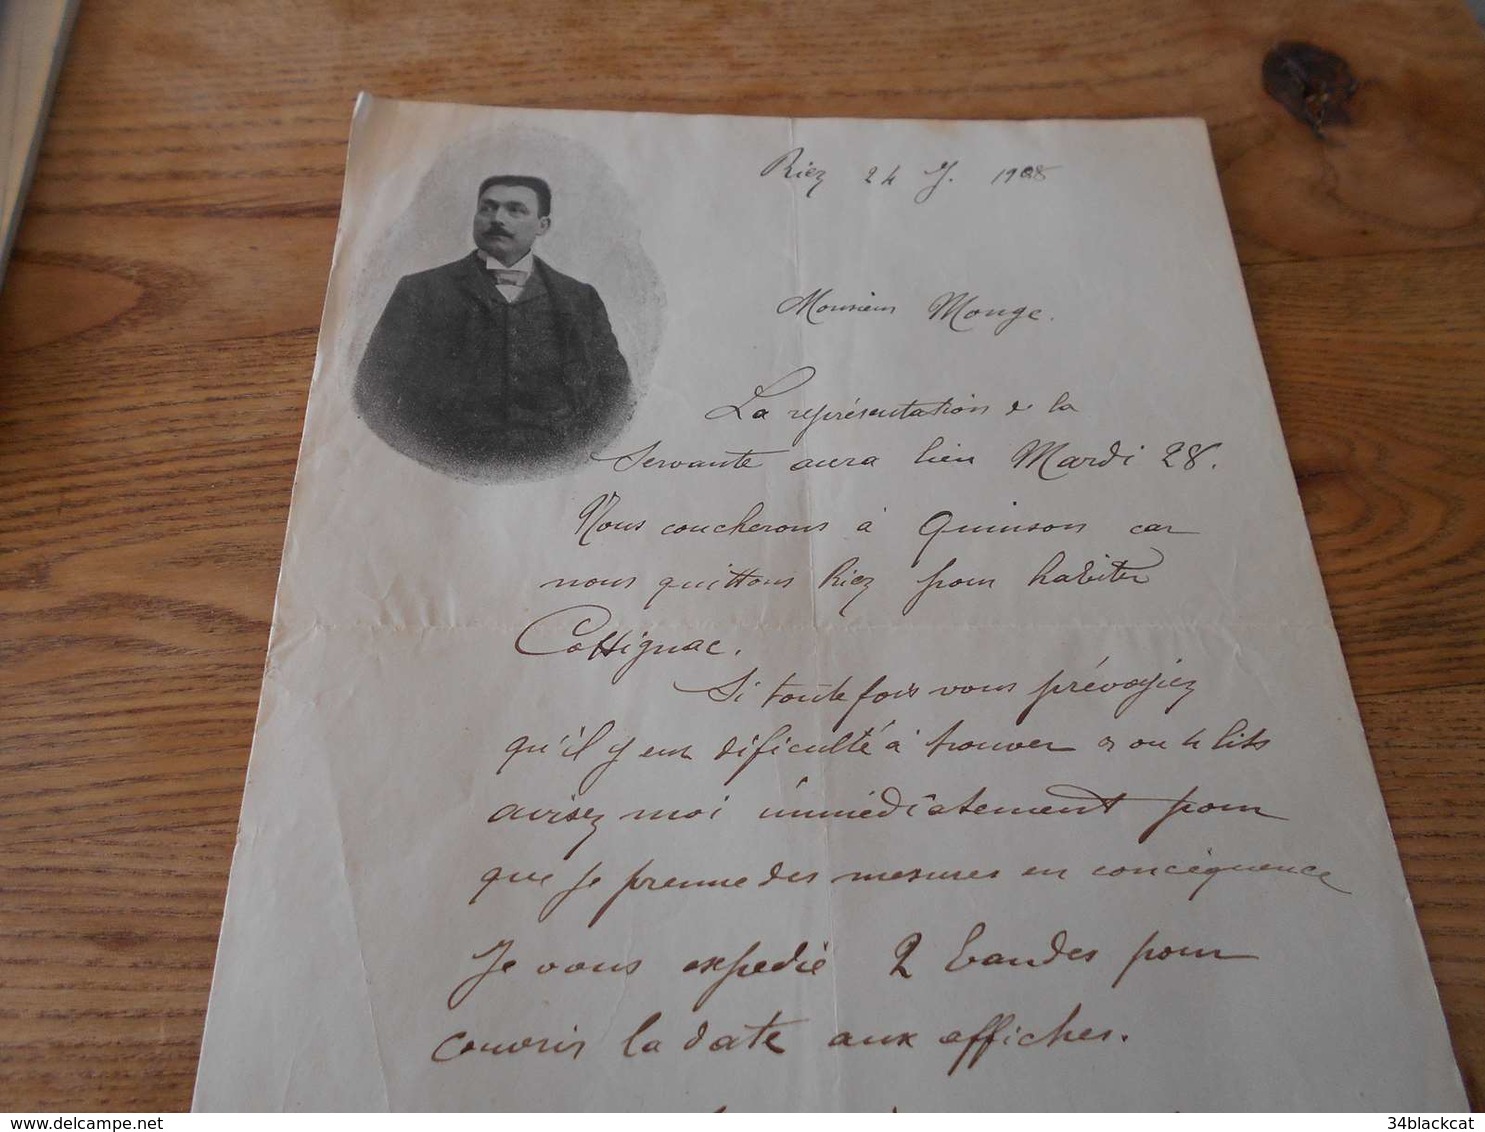 Riez 24 J. 1908
Monsieur Monge.
La représentation de la
Servante aura lieu Mardi 28.
Nous coucherons à Quinson car
nous quittons Riez pour habiter
Cottignac.
Si toute fois vous prévoyiez
qu'il y eut dificulté à trouver 3 ou 4 lits
avisez moi immédiatement pour
que je prenne des mesures en concéquence
Je vous expedie 2 bandes pour
couvrir la date aux affiches.
delcampe.net
34blackcat